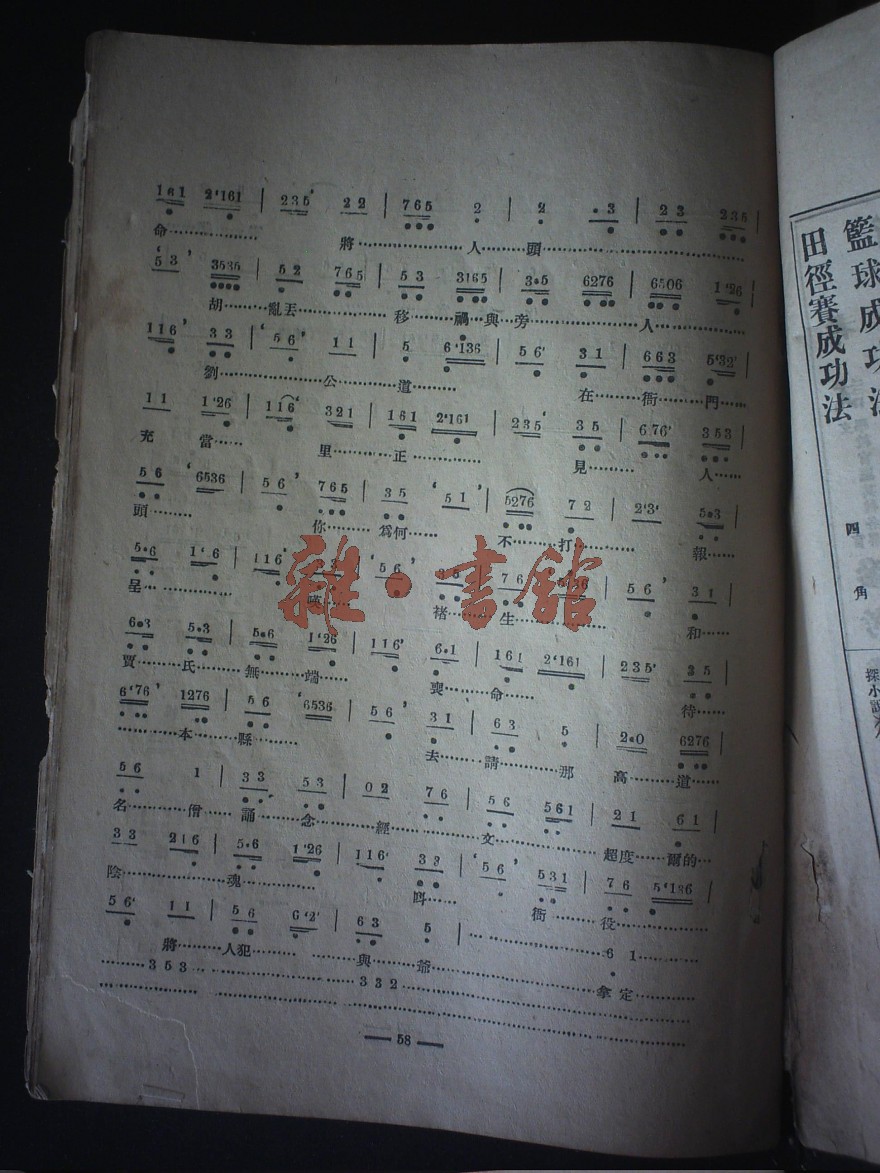 161 2'161 | 235' 22 | 765 2 | 2 .3 | 23 235 |
命………將………人……頭………
'53' 3535 | 52 765 | 53 3165 | 3.5 6276 | 6506 1'26 |
胡……亂丟………移……禍…與…旁………人………
116' 33 | '56' 11 | 5 6'136 | 56' 31 | 663 5'32' |
劉………公……道………在……衙……門……
11 1'26 | 116' 321 | 161 2'161 | 235' 35 | 676' 353 |
充…當……里……正………見………人…
56 '6536 | 56' 765 | 35 '51' | 5276 72 | 2'3' 5.3 |
頭………你………爲何………不……打………報……
5.6 1'6 | 116' | '56' | 76 | 56' 31 |
呈………嘆……褚……生………和……
6.3 5.3 | 5.6 1'26 | 116' 6.1 | 161 2'161 | 235' 35 |
賈……氏……無……端………喪……命………待……
6'76' 1276 | 56 '6536 | 56' 31 | 63 5 | 2.0 6276 |
………本……縣………去……請……那……高……道……
56 1 | 33 53 | 02 76 | 56 561 | 21 61 |
名……僧……誦……念……經………文………超度……爾的…
33 216 | 5.6 1'26 | 116' 33 | '56' 531 | 76 5'136 |
陰………魂………衙……役……
56' 11 | 56 6'2' | 63 5 | 61
將……人犯………與……爺………拿定
353 332
— 58 —
籃球成功法
田徑賽成功法
四角